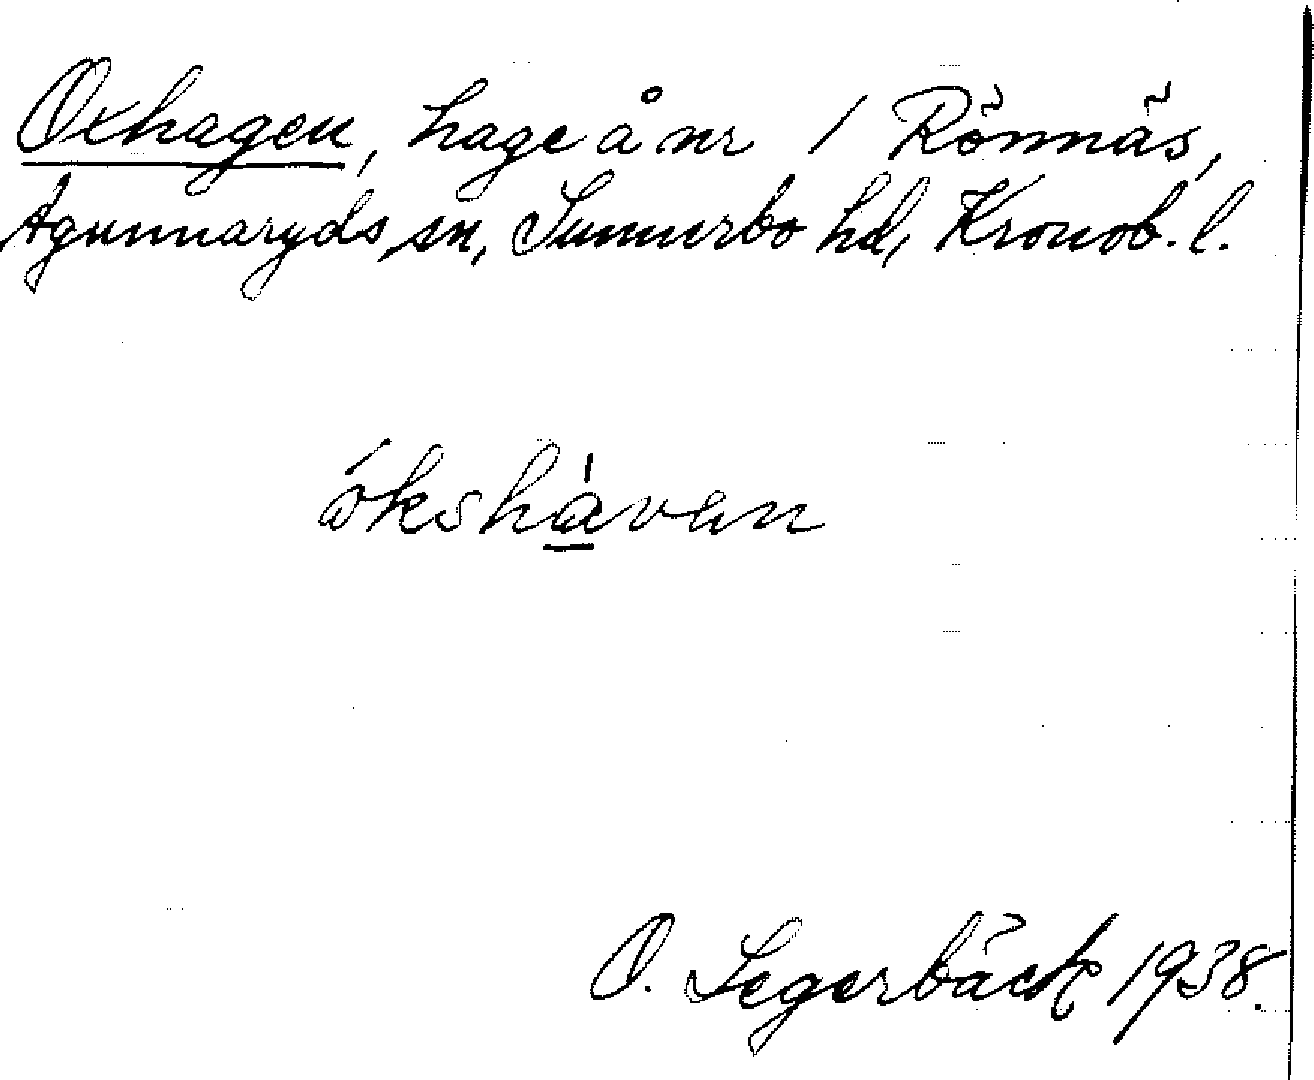 Oxhagen, hage å nr 1 Rönnäs,
Agunnaryds sn, Sunnerbo hd, Kronob. l.
ókshàvan
O. Segerbäck 1938.